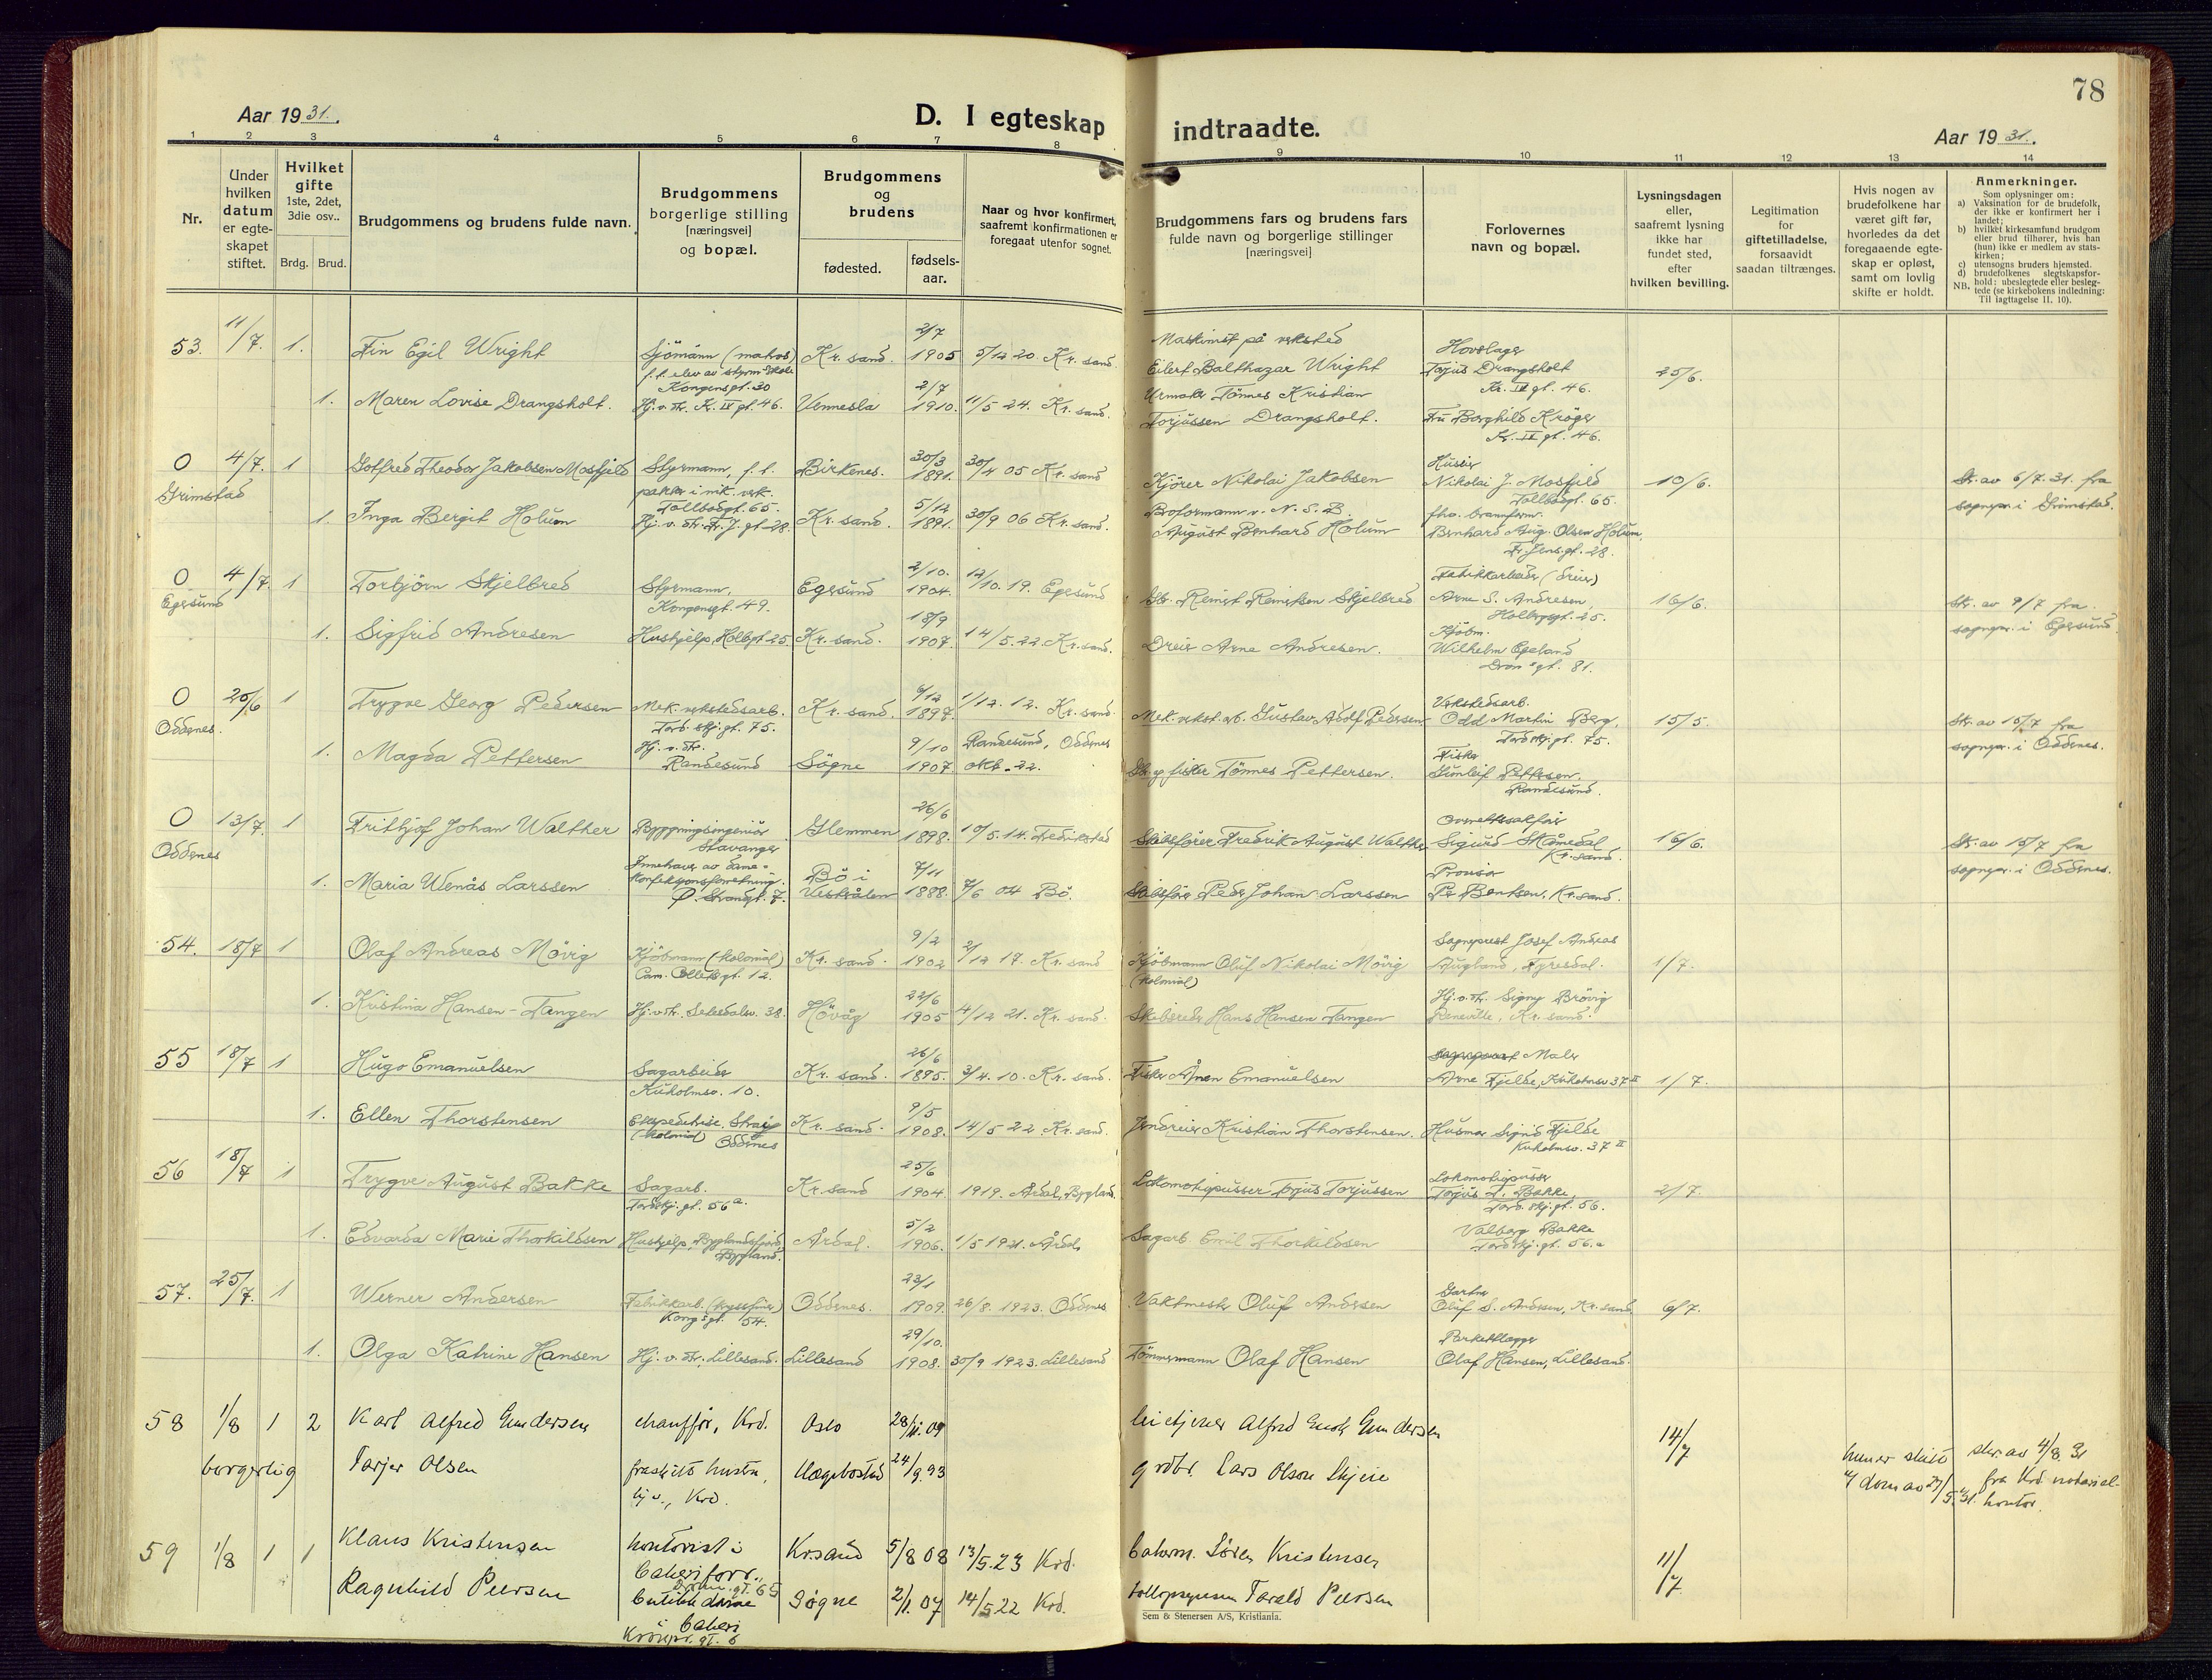 78
Aar 1931.
D. I egteskap indtraadte.
Aar 1931.
1 2 3 4 5 6 7 8 9 10 11 12 13 14
Nr.
Under hvilken datum er egteskapet stiftet.
Hvilket gifte 1ste, 2det, 3die osv..
Brdg. Brud.
Brudgommens og brudens fulde navn.
Brudgommens borgerlige stilling [næringsvei] og bopæl.
Brudgommens og brudens
fødested. fødselsaar.
Naar og hvor konfirmert, saafremt konfirmationen er foregaat utenfor sognet.
Brudgommens fars og brudens fars fulde navn og borgerlige stillinger [næringsvei]
Forlovernes navn og bopæl.
Lysningsdagen eller, saafremt lysning ikke har fundet sted, efter hvilken bevilling.
Legitimation for giftetilladelse, forsaavidt saadan tiltrænges.
Hvis nogen av brudefolkene har været gift før, hvorledes da det foregaaende egteskap er opløst, samt om lovlig skifte er holdt.
Anmerkninger.
Som oplysninger om:
a) Vaksination for de brudefolk, der ikke er konfirmert her i landet;
b) hvilket kirkesamfund brudgom eller brud tilhører, hvis han (hun) ikke er medlem av statskirken;
c) utensogns bruders hjemsted.
d) brudefolkenes slegtskapsforhold: ubeslegtede eller beslegtede (se kirkebokens indledning: Til iagttagelse II. 10).
NB.
53. 11/7. 1. Fin Egil Wright Sjömann (matros) f.t. elev av styrm. skole Kongensgt. 30 Kr. sand. 2/7 1905 5/12 20. Kr. sand. Maskinist på verksted Eilert Balthazar Wright Hovslager Torjus Drangsholt Kr. IV gt. 46. 25/6.
1. Maren Lovise Drangsholt. Hj. v. str. Kr. IV gt. 46. Vennesla 2/7 1910. 11/5 24. Kr. sand. Urmaker Tönnes Kristian Torjussen Drangsholt. Fru Borghild Kröger Kr. IV gt. 46.
O Grimstad 4/7. 1 Gotfred Theodor Jakobsen Mosfjeld Styrmann, f.t. pakker i nik. verk. Tollbodgt. 65. Birkenes. 30/3 1891. 30/4 05 Kr. sand Kjörer Nikolai Jakobsen Husier Nikolai J. Mosfjeld Tollbodgt. 65. 10/6. Str. av 6/7. 31. fra sognepr. i Grimstad.
1. Inga Bergit Holum Hj. v. str. Fr. J. gt. 28. Kr. sand. 5/12 1891. 30/9 06 Kr. sand. Boformann v. N. S. B. August Bernhard Holum fhv. brannform. Bernhard Aug. Olsen Holum, Fr. Jensgt. 28.
O Egersund 4/7. 1 Torbjörn Skjelbred Styrmann, Kongensgt. 49. Egersund 2/10. 1904. 12/10. 19. Egersund Gbr. Reinert Reinertsen Skjelbred Fabrikkarbeider (dreier) Arne S. Andresen Holbergsgt. 25. 16/6. Str. av 9/7 fra sognepr. i Egersund.
1. Sigfrid Andresen Hushjelp, Holbgt. 25. Kr. sand. 18/9 1907. 14/5. 22. Kr. sand. Dreier Arne Andresen. Kjöbm. Wilhelm Egeland Dron.s gt. 81.
O Oddernes. 20/6 1 Trygve Georg Pedersen Mek. verkstedsarb. Tord. skj. gt. 75. Kr. sand. 9/12 1897. 1/12. 12. Kr. sand. Mek. verkst. arb. Gustav Adolf Pedersen Verkstedsarb. Odd Martin Berg, Tordskj. gt. 75. 15/5. Str. av 15/7 fra sognepr. i Oddernes.
1. Magda Pettersen Hj. v. str. Randesund Sögne 9/10 1907. Randesund, Oddernes okt. 22. Gbr. og fisker Tönnes Pettersen. Fisker Gunleif Pettersen. Randesund.
O Oddernes 13/7. 1 Frithjof Johan Walther Bygningsingeniör Stavanger Glemmen 26/6 1898. 10/5. 14. Fredrikstad Skibsförer Fredrik August Walther Overrettssakförer Sigurd Skåmedal Kr. sand. 16/6. Str. av 15/7 fra sognepr. i Oddernes.
1. Maria Wenås Larssen Innehaver av damekonfeksjonsforretning. Ø. Strandgt. 7. Bö i Vesterålen 7/11 1888. 7/6 04 Bö. Skibsförer Peder Johan Larssen Provisor Per Bentsen, Kr. sand.
54. 18/7 1 Olaf Andreas Mövig Kjöbmann (kolonial) Cam. Colletts gt. 12. Kr. sand. 9/2 1902 2/12 17. Kr. sand Kjöbmann Oluf Nikolai Mövig (kolonial) Sogneprest Josef Andreas Augland, Fyresdal. 1/7.
1. Kristina Hansen-Tangen Hj. v. str. Setesdalsv. 38. Hövåg 22/6 1905 4/12 21. Kr. sand. Skibsreder Hans Hansen Tangen Hj. v. str. Signy Brövig Kr. sand.
55 18/7 1 Hugo Emanuelsen Sagarbeider Kuholmsv. 10. Kr. sand. 26/6 1895. 3/4. 10. Kr. sand. Fisker Emanuelsen Maler Arne Fjelde, Kuholmsv 37 II 1/7.
1. Ellen Thorstensen Ekspeditrise, Strai (kolonial) Oddernes Kr. sand. 9/5 1908. 14/5 22. Kr. sand. Jerndreier Kristian Thorstensen. Husmor Signe Fjelde Kuholmsv. 37 II
56 18/7 1 Trygve August Bakke Sagarb. Tordskj. gt. 56 a. Kr. sand 25/6 1904. 1919. Årdal, Bygland. Lokomotivpusser Torjus Torjussen Lokomotivpusser Torjus T. Bakke, Tord. skj. gt. 56. 2/7.
1. Edvarda Marie Thorkildsen Hushjelp, Byglandsfjord, Bygland. Årdal. 5/2 1906. 1/5 1921. Årdal. Sagarb. Emil Thorkildsen Valborg Bakke Tordskj. gt. 56. a
57. 25/7. 1 Werner Andersen Fabrikkarb. Kongsgt. 54. Oddernes. 23/1 1909. 26/8. 1923. Oddernes Vaktmester Oluf Andersen Gartner Oluf S. Andersen, Kr. sand 6/7.
1. Olga Katrine Hansen Hj. v. str. Lillesand. Lillesand 29/10. 1908. 30/9 1923. Lillesand Tömmermann Olaf Hansen Parkettlegger Olaf Hansen, Lillesand.
58 1/8 1 2 Karl Alfred Gundersen chauffør, Krd. Oslo 28/11. 09 Alfred Gundersen 14/7
borgerlig Tarjer Olsen fraskilt hustru, hj. v., Krd. Hægebostad 24/9. 93 grdbr. Lars Olsen Skjeie hun er skilt v/ dom av 27/5. 31. skr. av 4/8 31 fra Krd. notarialkontor.
59 1/8 1 1 Klaus Kristensen kontorist i bakeriforr., Dronn. gt. 65 Krsand 5/8 08 13/5. 23 Krd. bakerm. Sören Kristensen 11/7
Ragnhild Peersen butikkdame i bakeri Kronpr. gt. 6 Søgne 2/1. 07 14/5 22 Krd. Tarald Peersen
Sem & Stenersen A/S, Kristiania.